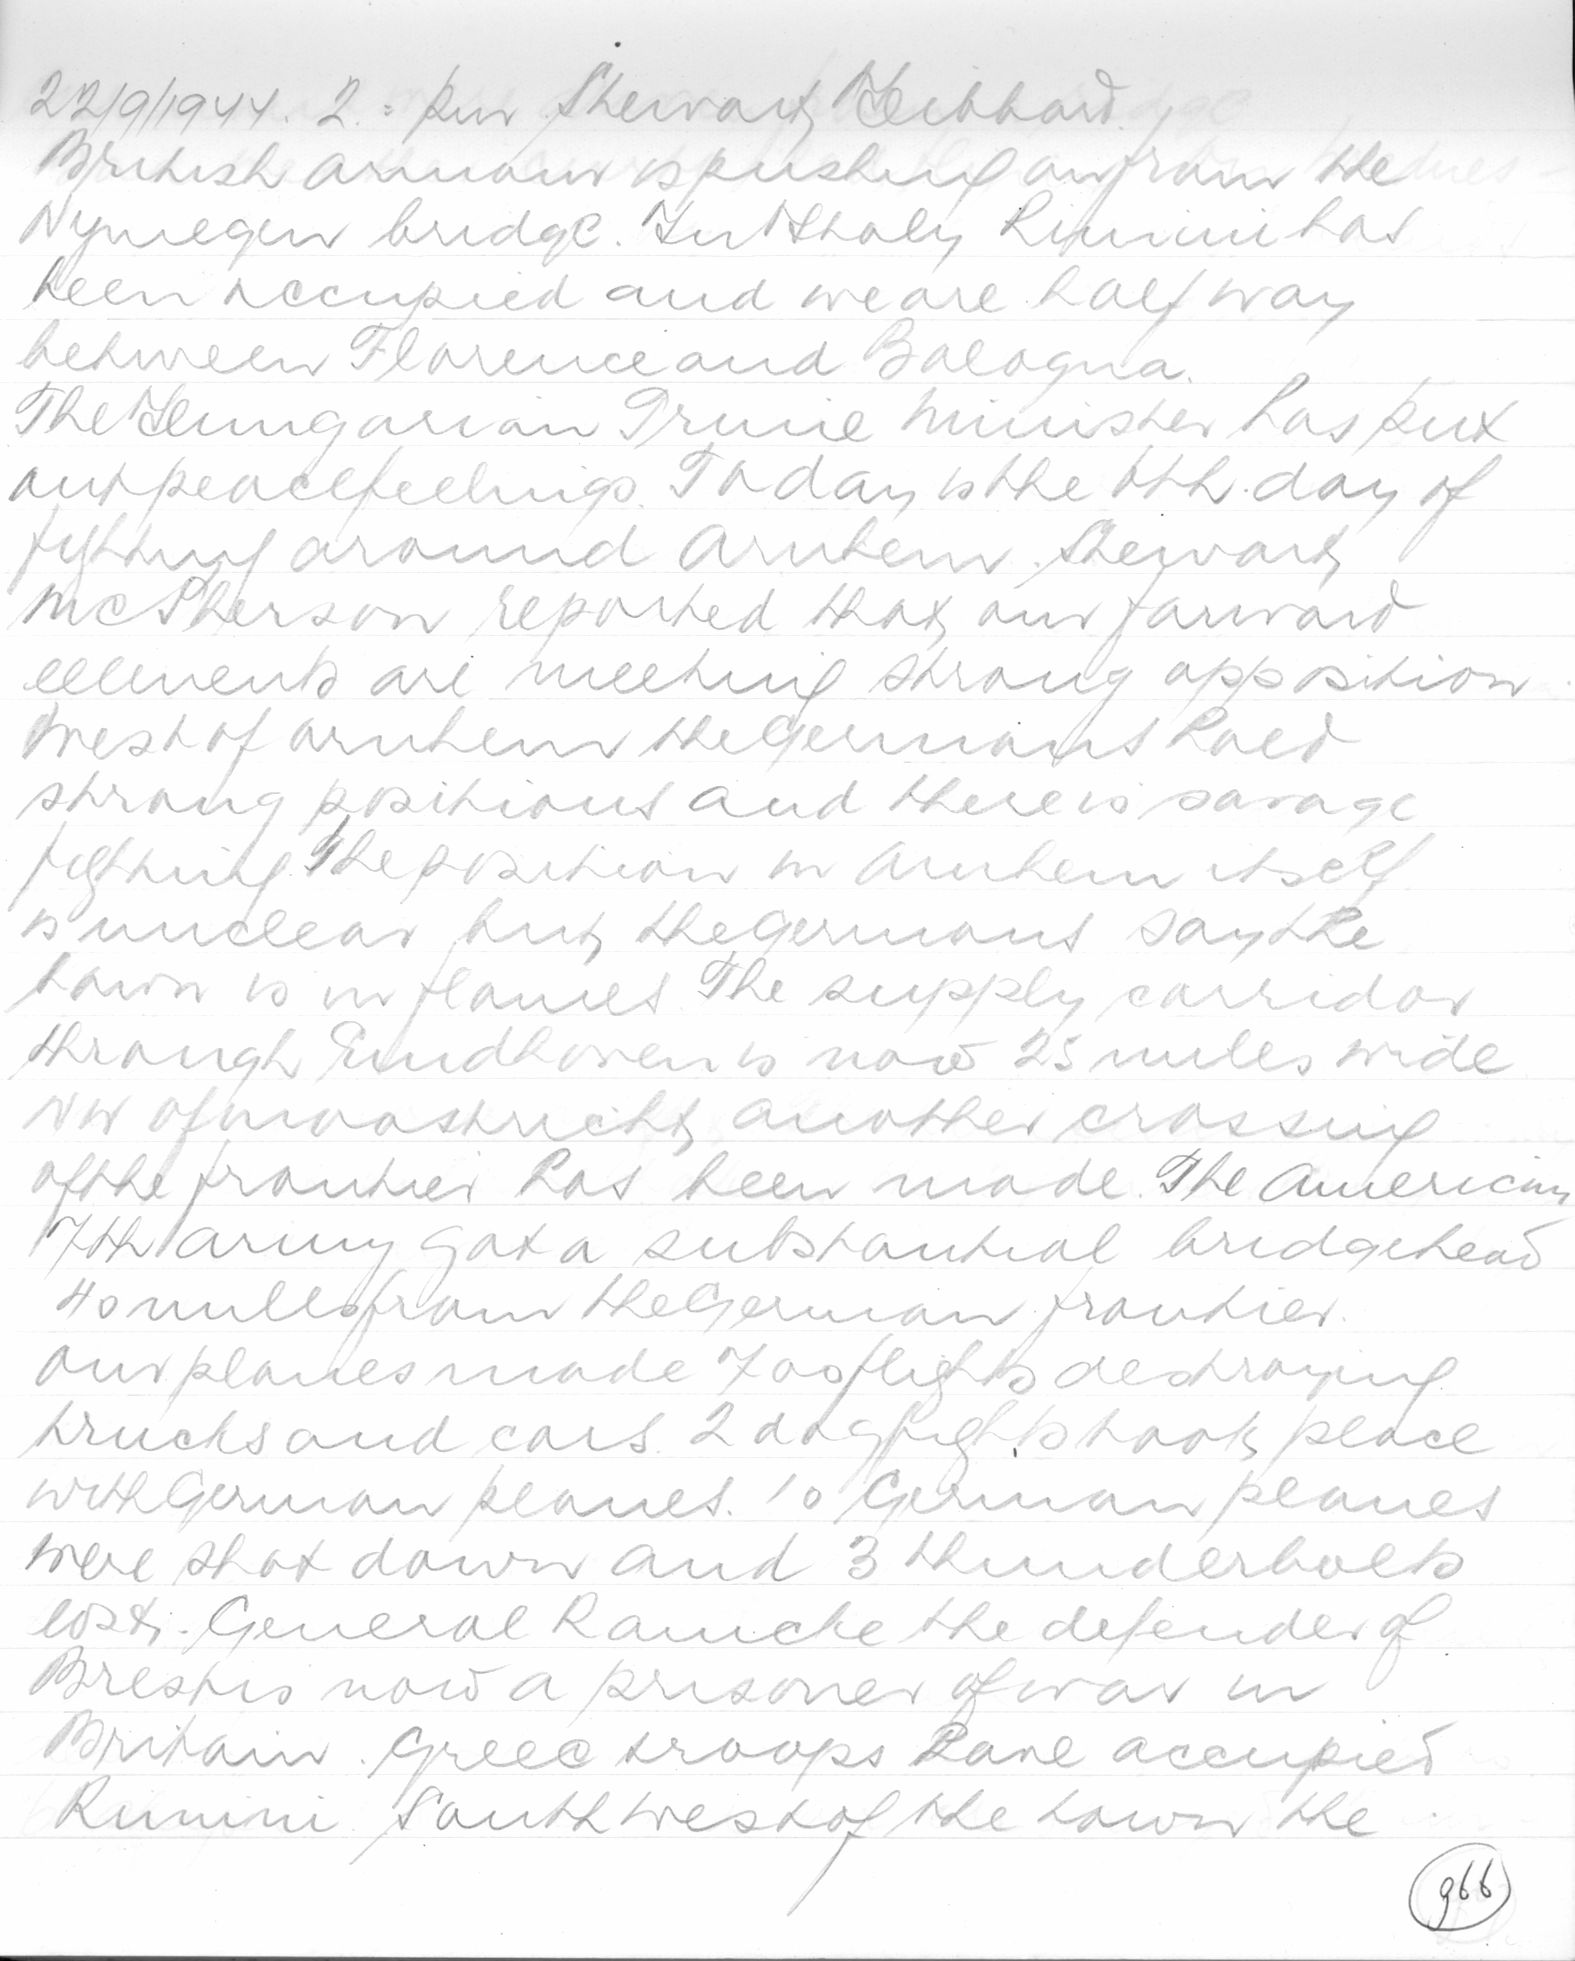 22/9/1944. 2.= pm Stewart Hibbard.
British armour is pushing on from the
Nymegen bridge. In Ithaly Rimini has
been occupied and we are half way
between Florence and Bologna.
The Hungarian Prime Minister has put
out peacefeelings. Today is the 6th. day of
fighting around Arnhem. Stewart
McPherson reported that our forward
ellements are meeting strong opposition
West of Arnhem the Germans hold
strong positions and there is savage
fighting. The position in Arnhem itself
is unclear but the Germans say the
town is in flames. The supply corridor
through Eindhoven is now 25 miles wide
NW of Maastricht another crossing
of the frontier has been made. The American
7th army got a substantial bridgehead
40 miles from the German frontier.
Our planes made 700 flights destroying
trucks and cars. 2 dogfights took place
with German planes. 10 German planes
were shot down and 3 thunderbolts
lost. General Ramcke the defender of
Brest is now a prisoner of war in
Britain. Greec troops have occupied
Rimini. South West of the town the
966